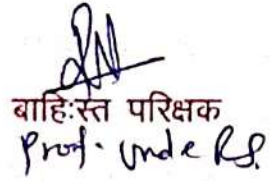 बाहि:स्त परिक्षक
Prof. Unde R.S.